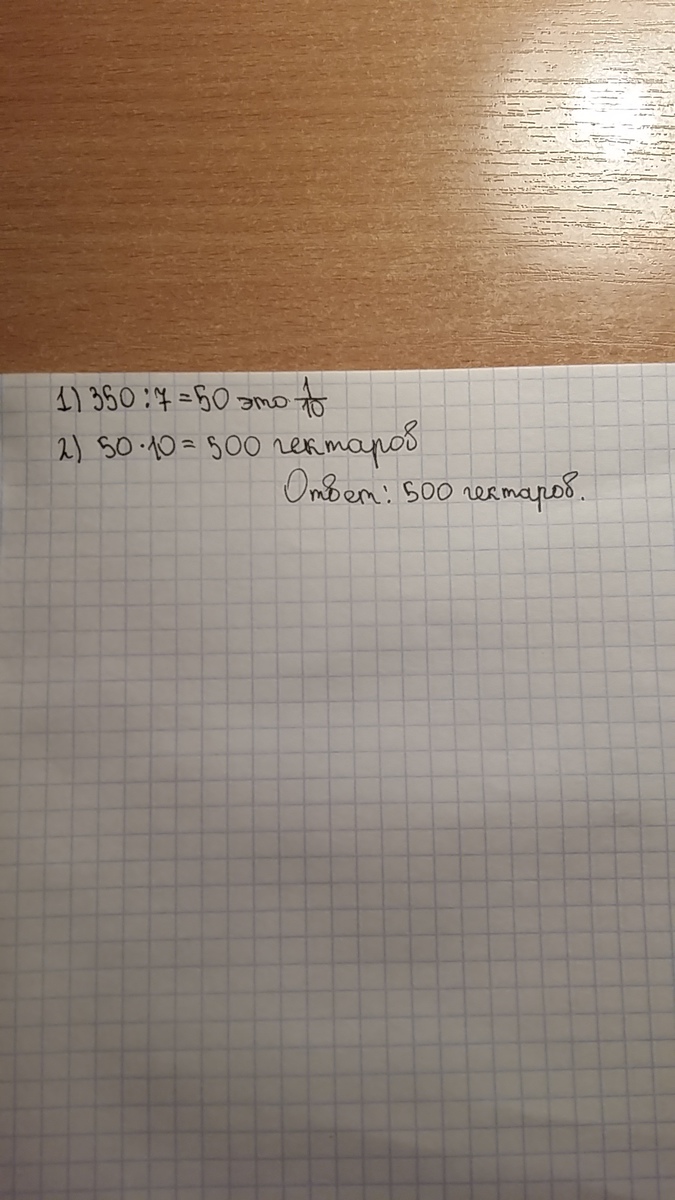 1) 350 : 7 = 50 это 1/10
2) 50 · 10 = 500 гектаров
Ответ: 500 гектаров.